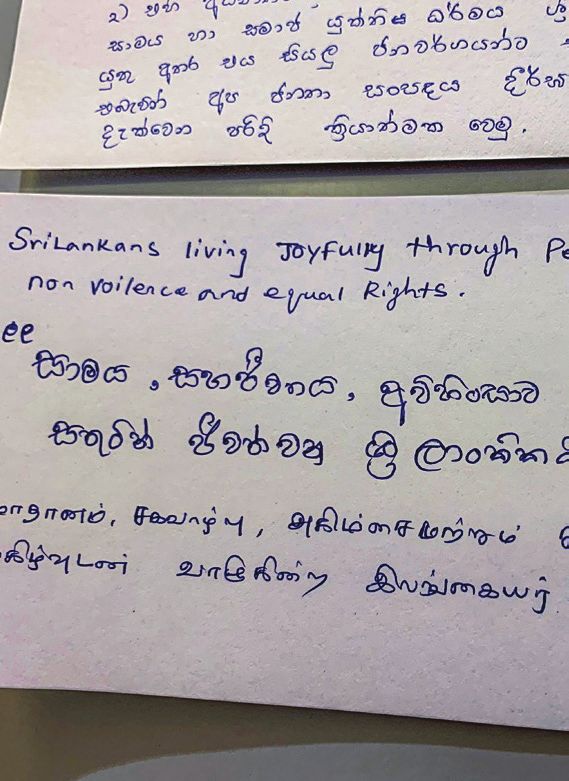 2) එහ
සාමය හා සමාජ යුක්තිය ධර්මය
යුතු අතර එය සියලු ජනවර්ගයන්ට
එබැවින් අප ජනතා සංසඳය
දැක්වෙන පරිදි ක්‍රියාත්මක වෙමු.
SriLankans living Joyfully through Pe
non voilence and equal Rights.
ee
සාමය, සහජීවනය, අවිහිංසාව
සතුටින් ජීවත්වන ශ්‍රී ලාංකික
ாதானம், சகவாழ்வு, அகிம்சை மற்றும்
கிழ்வுடன் வாழ்கின்ற இலங்கையர்